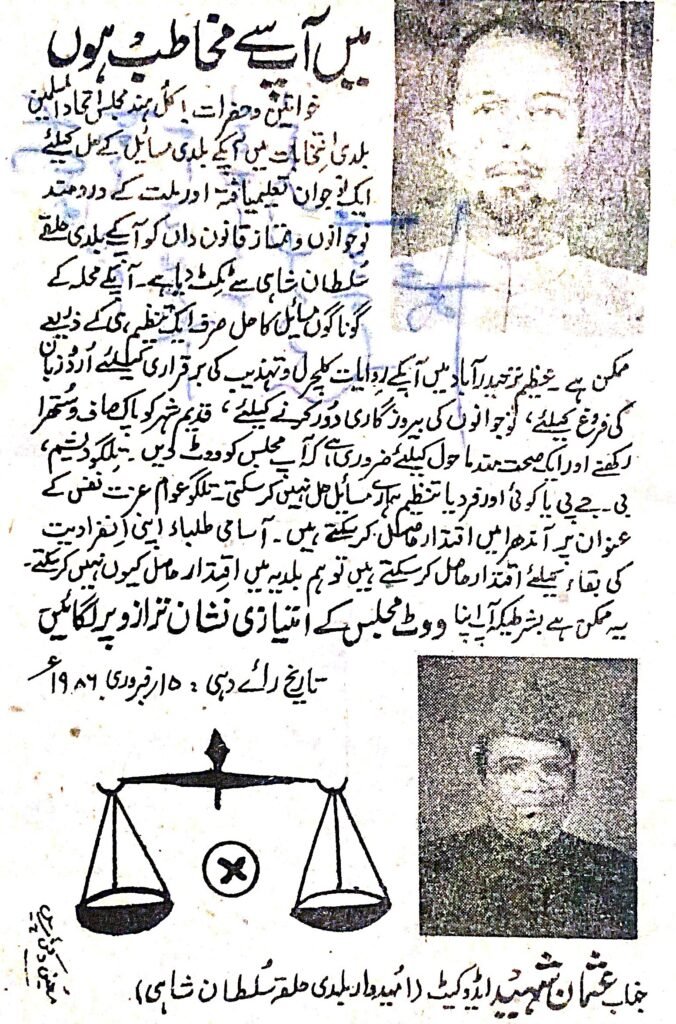 میں آپ سے مخاطب ہوں
خواتین و حضرات! کل ہند مجلس اتحاد المسلمین
بلدی انتخابات میں آپکے بلدی مسائل کے حل کیلئے
ایک نوجوان تعلیمیافتہ اور ملت کے دردمند
نوجوانوں و ممتاز قانون داں کو آپکے بلدی حلقے
سُلطان شاہی سے ٹکٹ دیا ہے۔ آپکے محلہ کے
گوناگوں مسائل کا حل صرف ایک تنظیم ہی کے ذریعے
ممکن ہے۔ عظیم تر حیدرآباد میں آپکے روایات کلچرل و تہذیب کی برقراری کیلئے اُردو زبان
کی فروغ کیلئے، نوجوانوں کی بیروزگاری دُور کرنے کیلئے، قدیم شہر کو پاک صاف و سُتھرا
رکھنے اور ایک صحت مند ماحول کیلئے ضروری ہے کہ آپ مجلس کو ووٹ دیں۔ تلگودیشم،
بی۔جے پی یا کوئی اور فرد یا تنظیم ہمارے مسائل حل نہیں کر سکتی۔ تلگو عوام عزت نفس کے
عنوان پر آندھرا میں اقتدار حاصل کر سکتے ہیں۔ آسامی طلباء اپنی اِنفرادیت
کی بقاء کیلئے اقتدار حاصل کر سکتے ہیں تو ہم بلدیہ میں اقتدار حاصل کیوں نہیں کر سکتے۔
یہ ممکن ہے بشرطیکہ آپ اپنا ووٹ مجلس کے امتیازی نشان ترازو پر لگائیں
تاریخ رائے دہی : ۱۵؍ فروری ۱۹۸۶ء
جناب عثمان شہید ایڈوکیٹ (اُمیدوار بلدی حلقہ سُلطان شاہی)